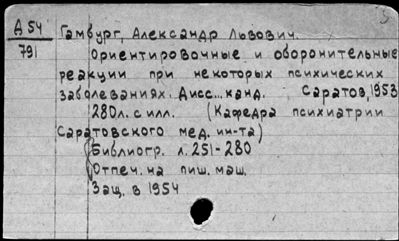 А 54
791
Гамбург, Александр Львович.
Ориентировочные и оборонительные
реакции при некоторых психических
заболеваниях. Дисс... канд. Саратов, 1953
280л. с илл. (Кафедра психиатрии
Саратовского мед. ин-та)
Библиогр. л. 251-280
Отпеч. на пиш. маш.
Защ. в 1954